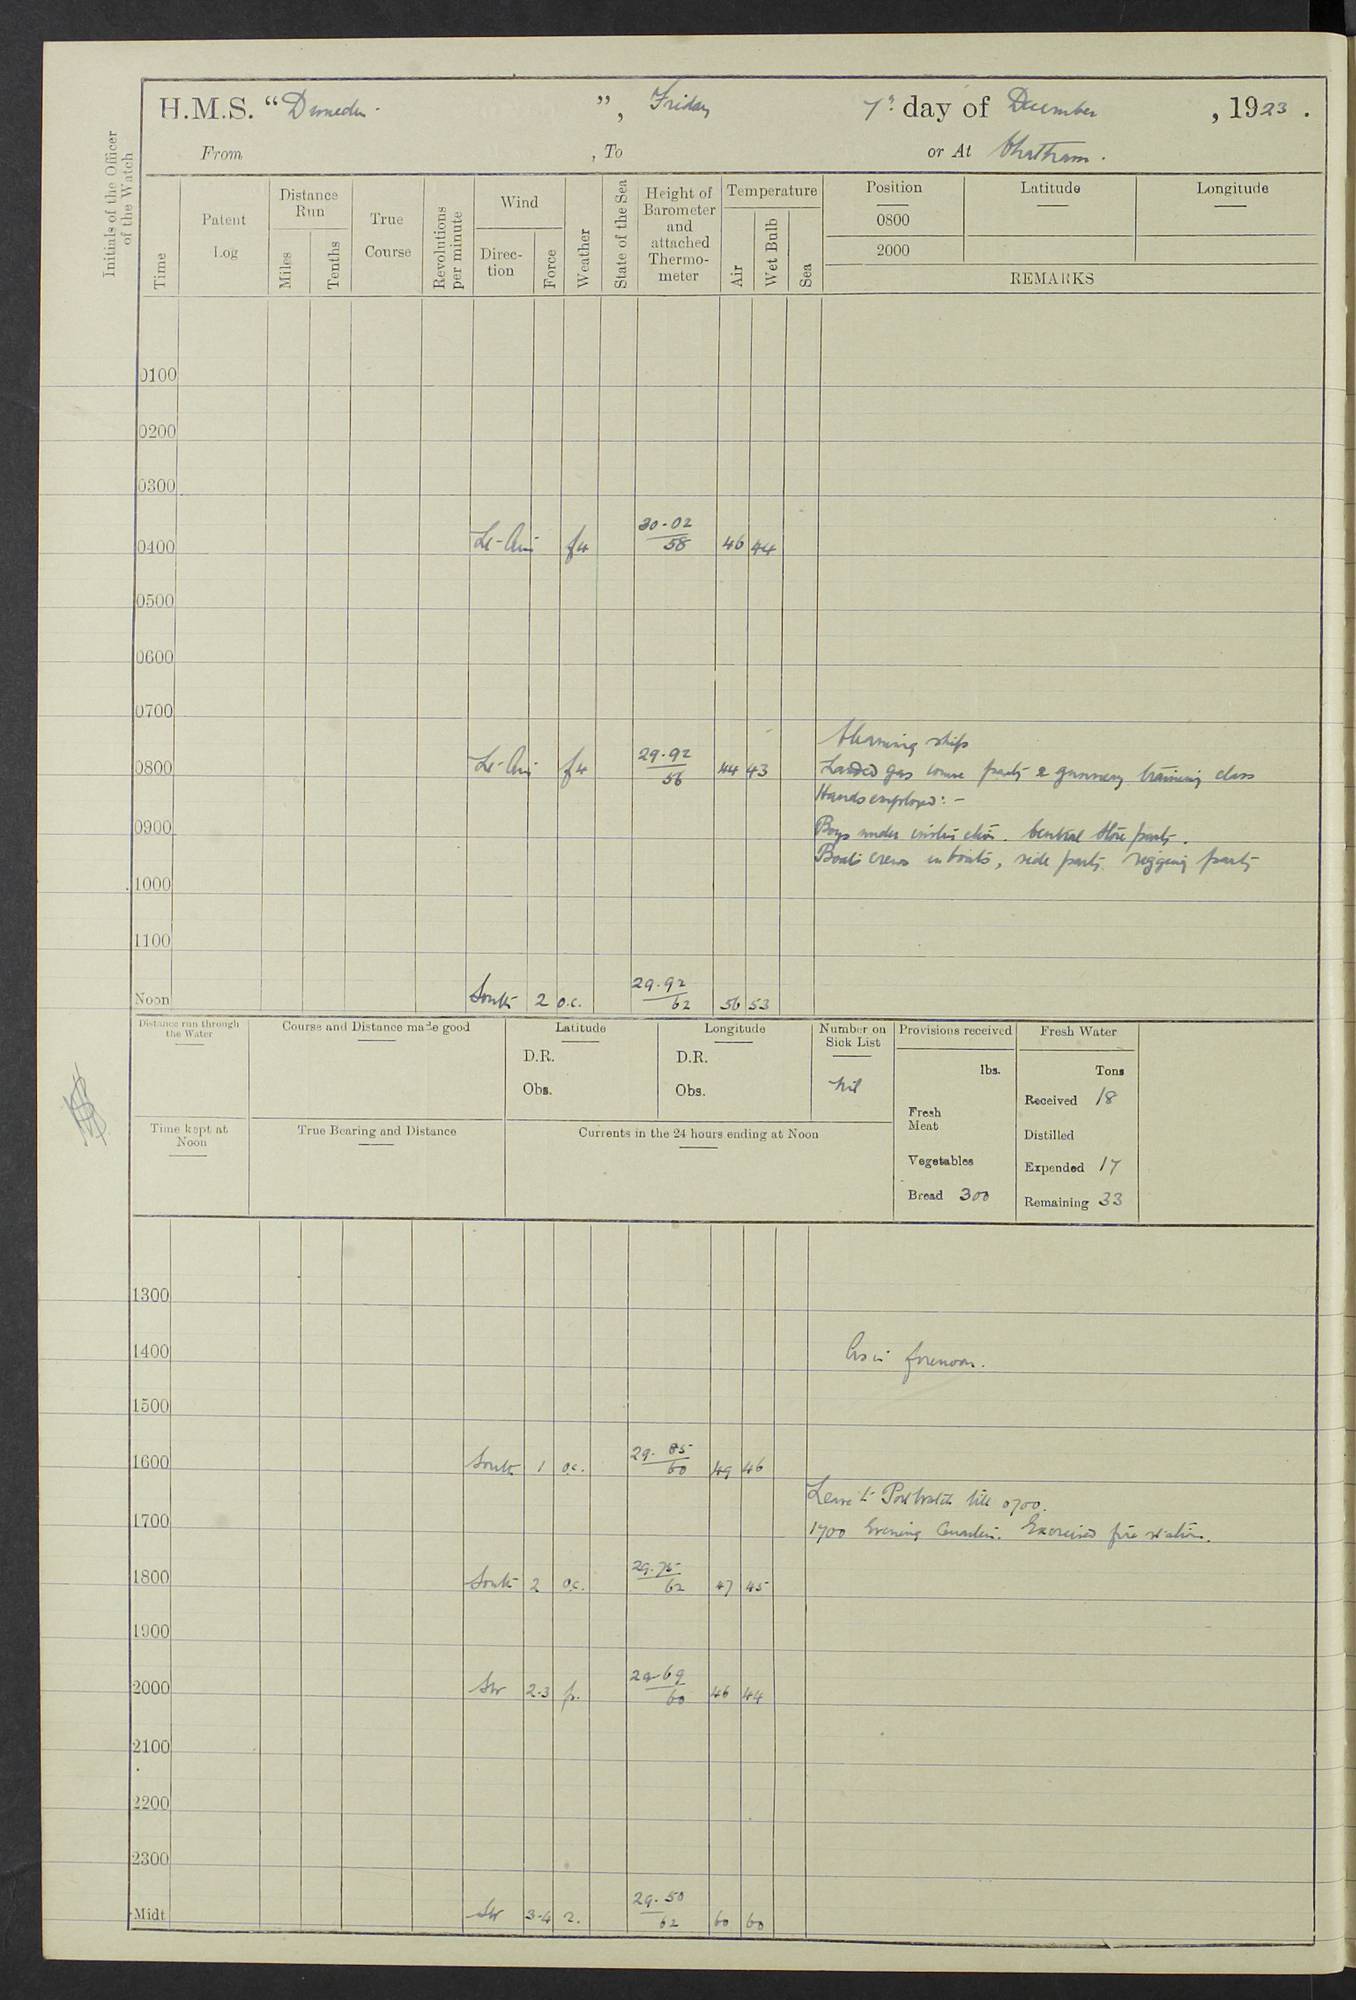 H.M.S. “Dunedin.”, Friday 7th day of December, 1923.
From , To or At Chatham.
Initials of the Officer of the Watch
Time
Patent Log
Distance Run
Miles
Tenths
True Course
Revolutions per minute
Wind
Direction
Force
Weather
State of the Sea
Height of Barometer and attached Thermometer
Temperature
Air
Wet Bulb
Sea
Position Latitude Longitude
0800
2000
REMARKS
0100
0200
0300
0400 Lt-Airs f4 30.02 / 58 46 44
0500
0600
0700
Cleaning ship
0800 Lt-Airs f4 29.92 / 56 44 43 Landed gas course party & gunnery training class
Hands employed:-
0900 Boys under instruction. Central Store party.
Boats crews in boats, side party rigging party
1000
1100
Noon South 2 o.c. 29.92 / 62 56 53
Distance run through the Water
Course and Distance made good
Latitude
D.R.
Obs.
Longitude
D.R.
Obs.
Number on Sick List
Nil
Provisions received
lbs.
Fresh Meat
Vegetables
Bread 300
Fresh Water
Tons
Received 18
Distilled
Expended 17
Remaining 33
Time kept at Noon
True Bearing and Distance
Currents in the 24 hours ending at Noon
1300
1400 As in forenoon.
1500
1600 South 1 o.c. 29.85 / 60 49 46
Leave to Port Watch till 0700.
1700 1700 Evening Quarters. Exercised fire stations.
1800 South 2 o.c. 29.75 / 62 47 45
1900
2000 SW 2-3 29.69 / 60 46 44
2100
2200
2300
Midt SW 3-4 r. 29.50 / 62 60 60